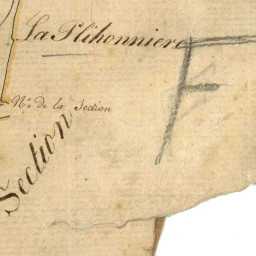 La Plihonniere
F
N.o de la Section
Section